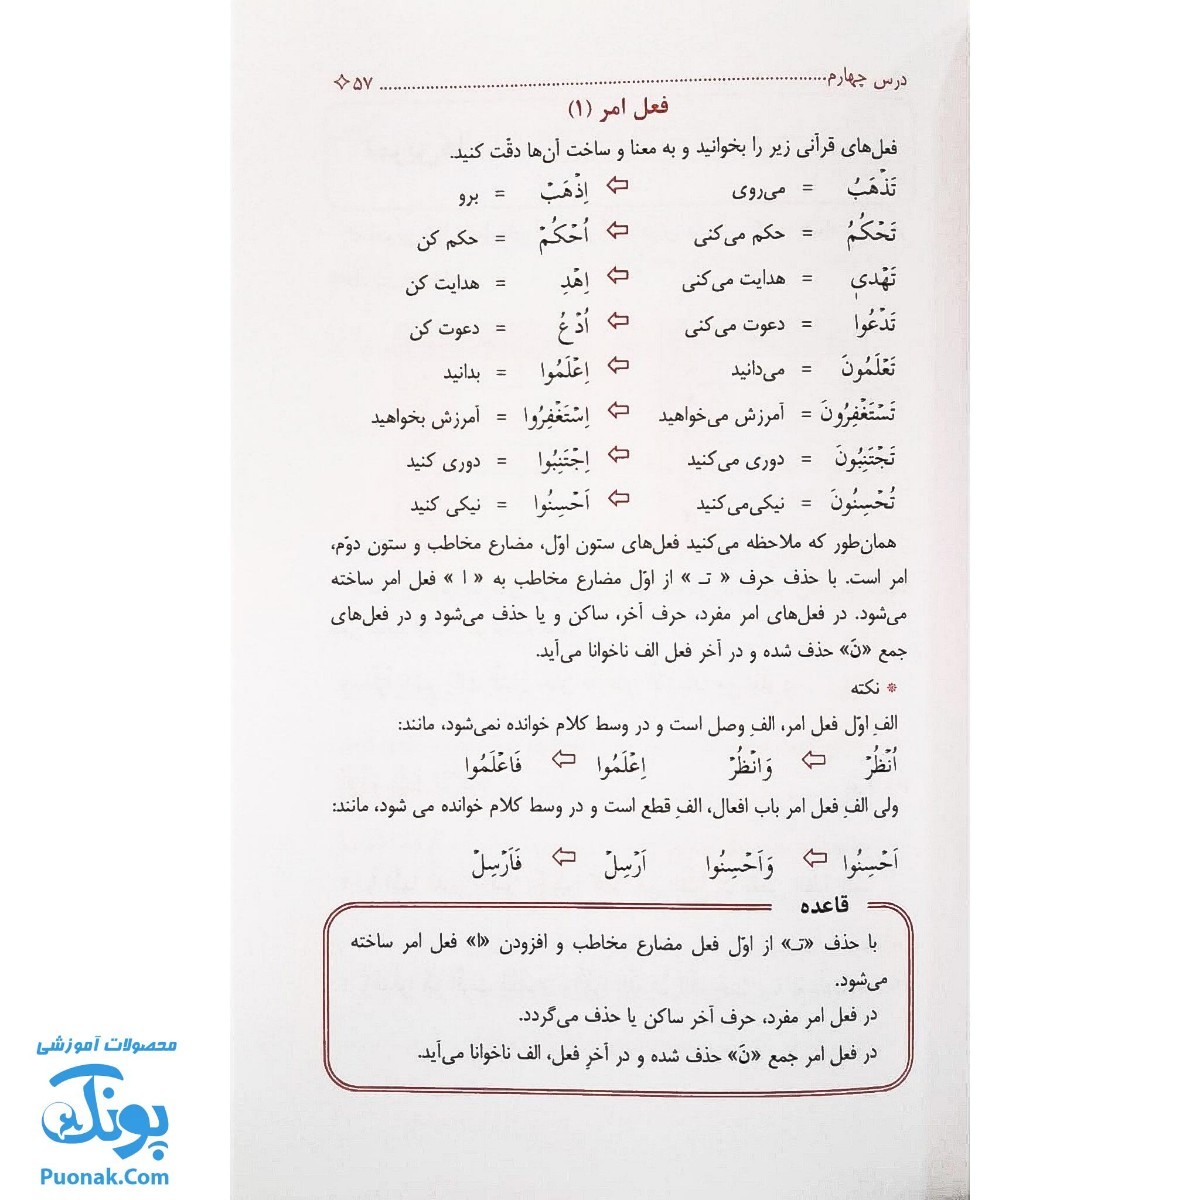 درس چهارم ........................................................................................... ۵۷
فعل امر (۱)
فعل‌های قرآنی زیر را بخوانید و به معنا و ساخت آن‌ها دقّت کنید.
تَذْهَبُ = می‌روی ⇦ اِذْهَبْ = برو
تَحْكُمُ = حکم می‌کنی ⇦ اُحْكُمْ = حکم کن
تَهْدي = هدایت می‌کنی ⇦ اِهْدِ = هدایت کن
تَدْعُوا = دعوت می‌کنی ⇦ اُدْعُ = دعوت کن
تَعْلَمُونَ = می‌دانید ⇦ اِعْلَمُوا = بدانید
تَسْتَغْفِرُونَ = آمرزش می‌خواهید ⇦ اِسْتَغْفِرُوا = آمرزش بخواهید
تَجْتَنِبُونَ = دوری می‌کنید ⇦ اِجْتَنِبُوا = دوری کنید
تُحْسِنُونَ = نیکی‌می‌کنید ⇦ اَحْسِنُوا = نیکی کنید
همان‌طور که ملاحظه می‌کنید فعل‌های ستون اوّل، مضارع مخاطب و ستون دوّم،
امر است. با حذف حرف « تـ » از اوّل مضارع مخاطب به « ا » فعل امر ساخته
می‌شود. در فعل‌های امر مفرد، حرف آخر، ساکن و یا حذف می‌شود و در فعل‌های
جمع «نَ» حذف شده و در آخر فعل الف ناخوانا می‌آید.
* نکته
الفِ اوّل فعل امر، الفِ وصل است و در وسط کلام خوانده نمی‌شود، مانند:
اُنْظُرْ ⇦ وَانْظُرْ اِعْلَمُوا ⇦ فَاعْلَمُوا
ولی الفِ فعل امر باب افعال، الفِ قطع است و در وسط کلام خوانده می شود، مانند:
اَحْسِنُوا ⇦ وَاَحْسِنُوا اَرْسِلْ ⇦ فَاَرْسِلْ
قاعده
با حذف «تـ» از اوّل فعل مضارع مخاطب و افزودن «ا» فعل امر ساخته
می‌شود.
در فعل امر مفرد، حرف آخر ساکن یا حذف می‌گردد.
در فعل امر جمع «نَ» حذف شده و در آخرِ فعل، الف ناخوانا می‌آید.
محصولات آموزشی
پونک
Puonak.Com